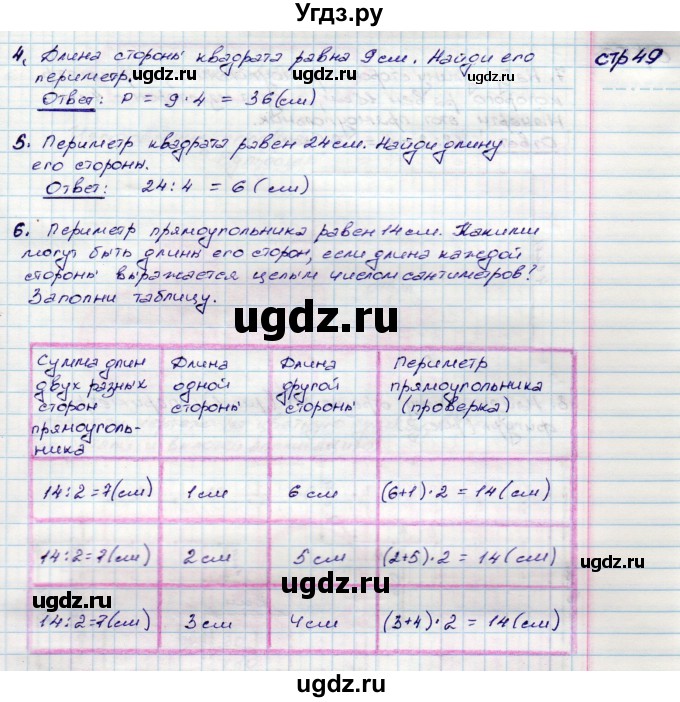 Угдз.ру
стр 49
4. Длина стороны квадрата равна 9 см. Найди его
периметр.
ugdz.ru ugdz.ru
Ответ: P = 9 · 4 = 36 (см)
5. Периметр квадрата равен 24 см. Найди длину
его стороны.
ugdz.ru ugdz.ru
Ответ: 24 : 4 = 6 (см)
6. Периметр прямоугольника равен 14 см. Какими
могут быть длины его сторон, если длина каждой
ugdz.ru
стороны выражается целым числом сантиметров?
Заполни таблицу.
ugdz.ru
Сумма длин двух разных сторон прямоуголь-ника
Длина одной стороны
Длина другой стороны
Периметр прямоугольника (проверка)
ugdz.ru ugdz.ru
14 : 2 = 7 (см) 1 см 6 см (6+1) · 2 = 14 (см)
ugdz.ru
14 : 2 = 7 (см) 2 см 5 см (2+5) · 2 = 14 (см)
ugdz.ru ugdz.ru
14 : 2 = 7 (см) 3 см 4 см (3+4) · 2 = 14 (см)
ugdz.ru
ugdz.ru